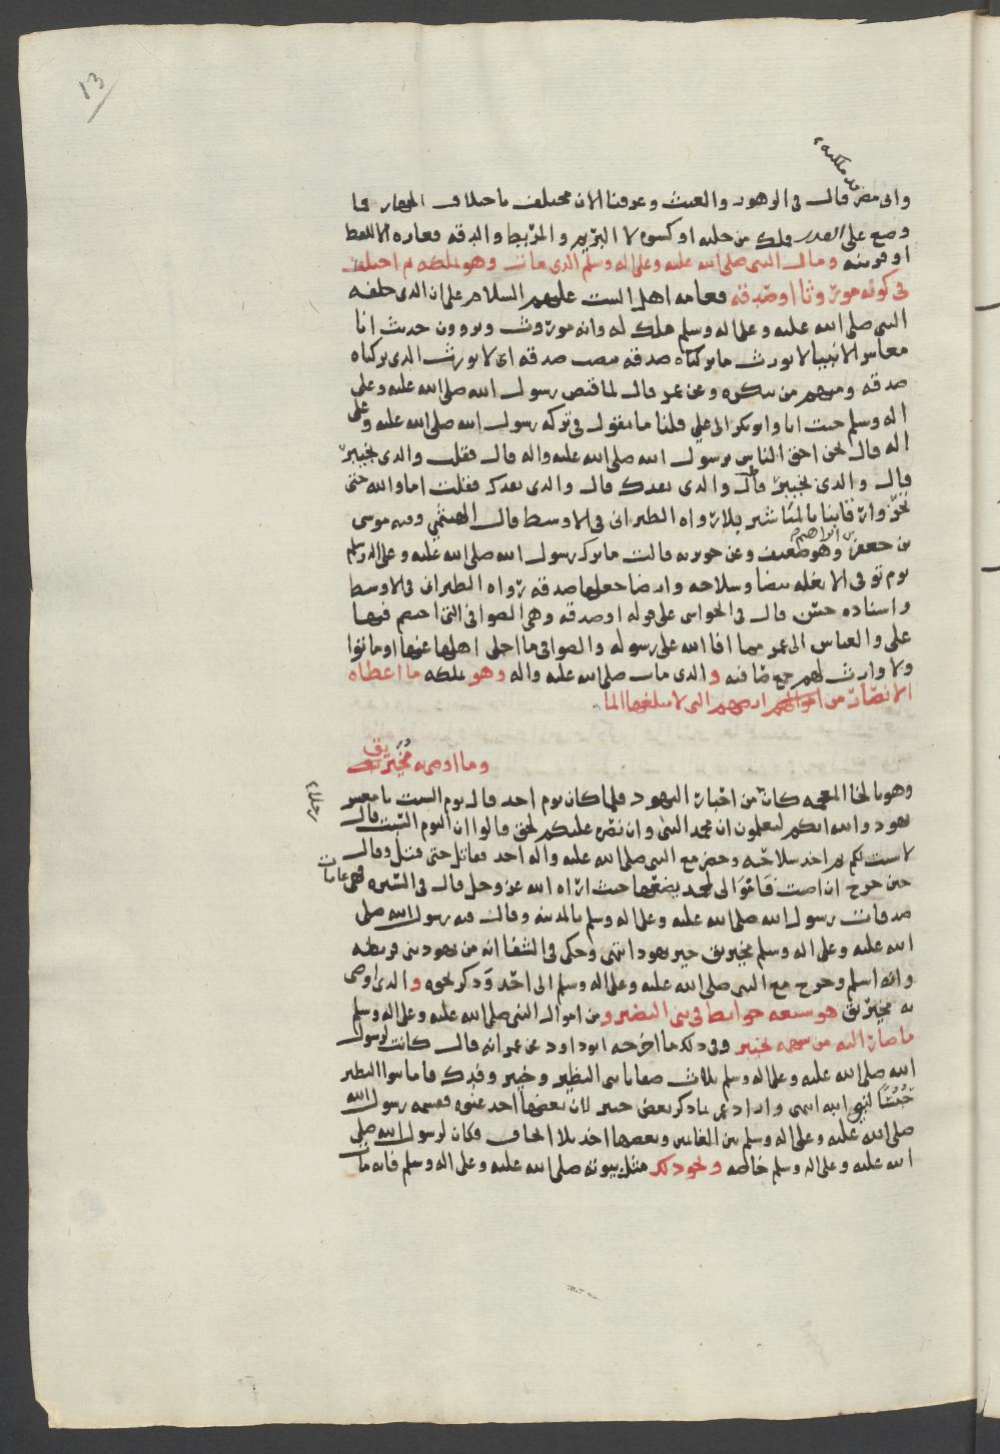 13
قال في الزهور والغيث وعرفنا الآن مختلف باختلاف
وضع على فملك من حليه او كسوه لا
او قرينه ومال النبي صلى الله عليه وعلى اله وسلم الذي مات وهو ملكه ثم اختلف
في كونه موروثا او صدقه فعامه اهل البيت عليهم السلام على ان الذي خلفه
النبي صلى الله عليه وعلى اله وسلم ملك له وانه موروث ويروون حديث انا
معاشر الانبيا لا نورث ما تركناه صدقه بنصب صدقه اي لا يورث الذي تركناه
صدقه ومنهم من ينكره وعن عمر قال لما قبض رسول الله صلى الله عليه وعلى
اله وسلم جئت انا وابو بكر الى علي فقلنا ما تقول في تركه رسول الله صلى الله عليه وعلى
اله قال نحن احق الناس برسول الله صلى الله عليه واله قال فقلت والذي بخيبر
قال والذي بخيبر قلت والذي بفدك قال والذي بفدك فقلت اما والله حتى
تحزوا رقابنا بالمناشير فلا رواه الطبراني في الاوسط قال الهيثمي وفيه موسى
بن جعفر بن ابراهيم وهو ضعيف وعن جويريه قالت ما ترك رسول الله صلى الله عليه وعلى اله وسلم
يوم توفي الا بغله بيضا وسلاحه وارضا جعلها صدقه رواه الطبراني في الاوسط
واسناده حسن قال في الحواشي على قوله او صدقه وهي الصوافي التي اختصم فيها
علي والعباس الى عمر مما افا الله على رسوله والصوافي ما اجلى اهلها عنها او ماتوا
ولا وارث لهم جمع صافيه والذي مات صلى الله عليه واله وهو ملكه ما اعطاه
الانصار من ارضهم التي لا يبلغها الما
وما اوصى به مخيريق
وهو بالخا المعجمه كان من احبار اليهود فلما كان يوم احد قال يوم السبت يا معشر
يهود والله انكم لتعلمون ان محمد النبي وان نصره عليكم لحق قالوا ان اليوم السبت قال
لا سبت لكم ثم اخذ سلاحه وحضر مع النبي صلى الله عليه واله احد فقاتل حتى قتل وقال
حين خرج ان اصبت فاموالي لمحمد يضعها حيث اراه الله عز وجل قال في السيره فهي عامات
صدقات رسول الله صلى الله عليه وعلى اله وسلم بالمدينه وقال فيه رسول الله صلى
الله عليه وعلى اله وسلم مخيريق خير يهود انتهى وحكى في الشفا انه من يهود بني قريظه
وانه اسلم وخرج مع النبي صلى الله عليه وعلى اله وسلم الى احد وذكر نحوه والذي اوصى
به مخيريق هو سبعه حوايط في بني النضير ومن اموال النبي صلى الله عليه وعلى اله وسلم
ما صار اليه من سهمه بخيبر وفي ذلك ما اخرجه ابو داود عن عمر انه قال كانت لرسول
الله صلى الله عليه وعلى اله وسلم ثلاث صفايا بني النظير وخيبر وفدك فاما بنوا النظير
حبسا لنوائبه انتهى واراد عمر بما ذكر بعض خيبر لان بعضها اخذ عنوه فقسمه رسول الله
صلى الله عليه وعلى اله وسلم بين الغانمين وبعضها اخذ بلا ايجاف وكان لرسول الله صلى
الله عليه وعلى اله وسلم خالصه ونحو ذلك مثل بيوته صلى الله عليه وعلى اله وسلم فانه مات